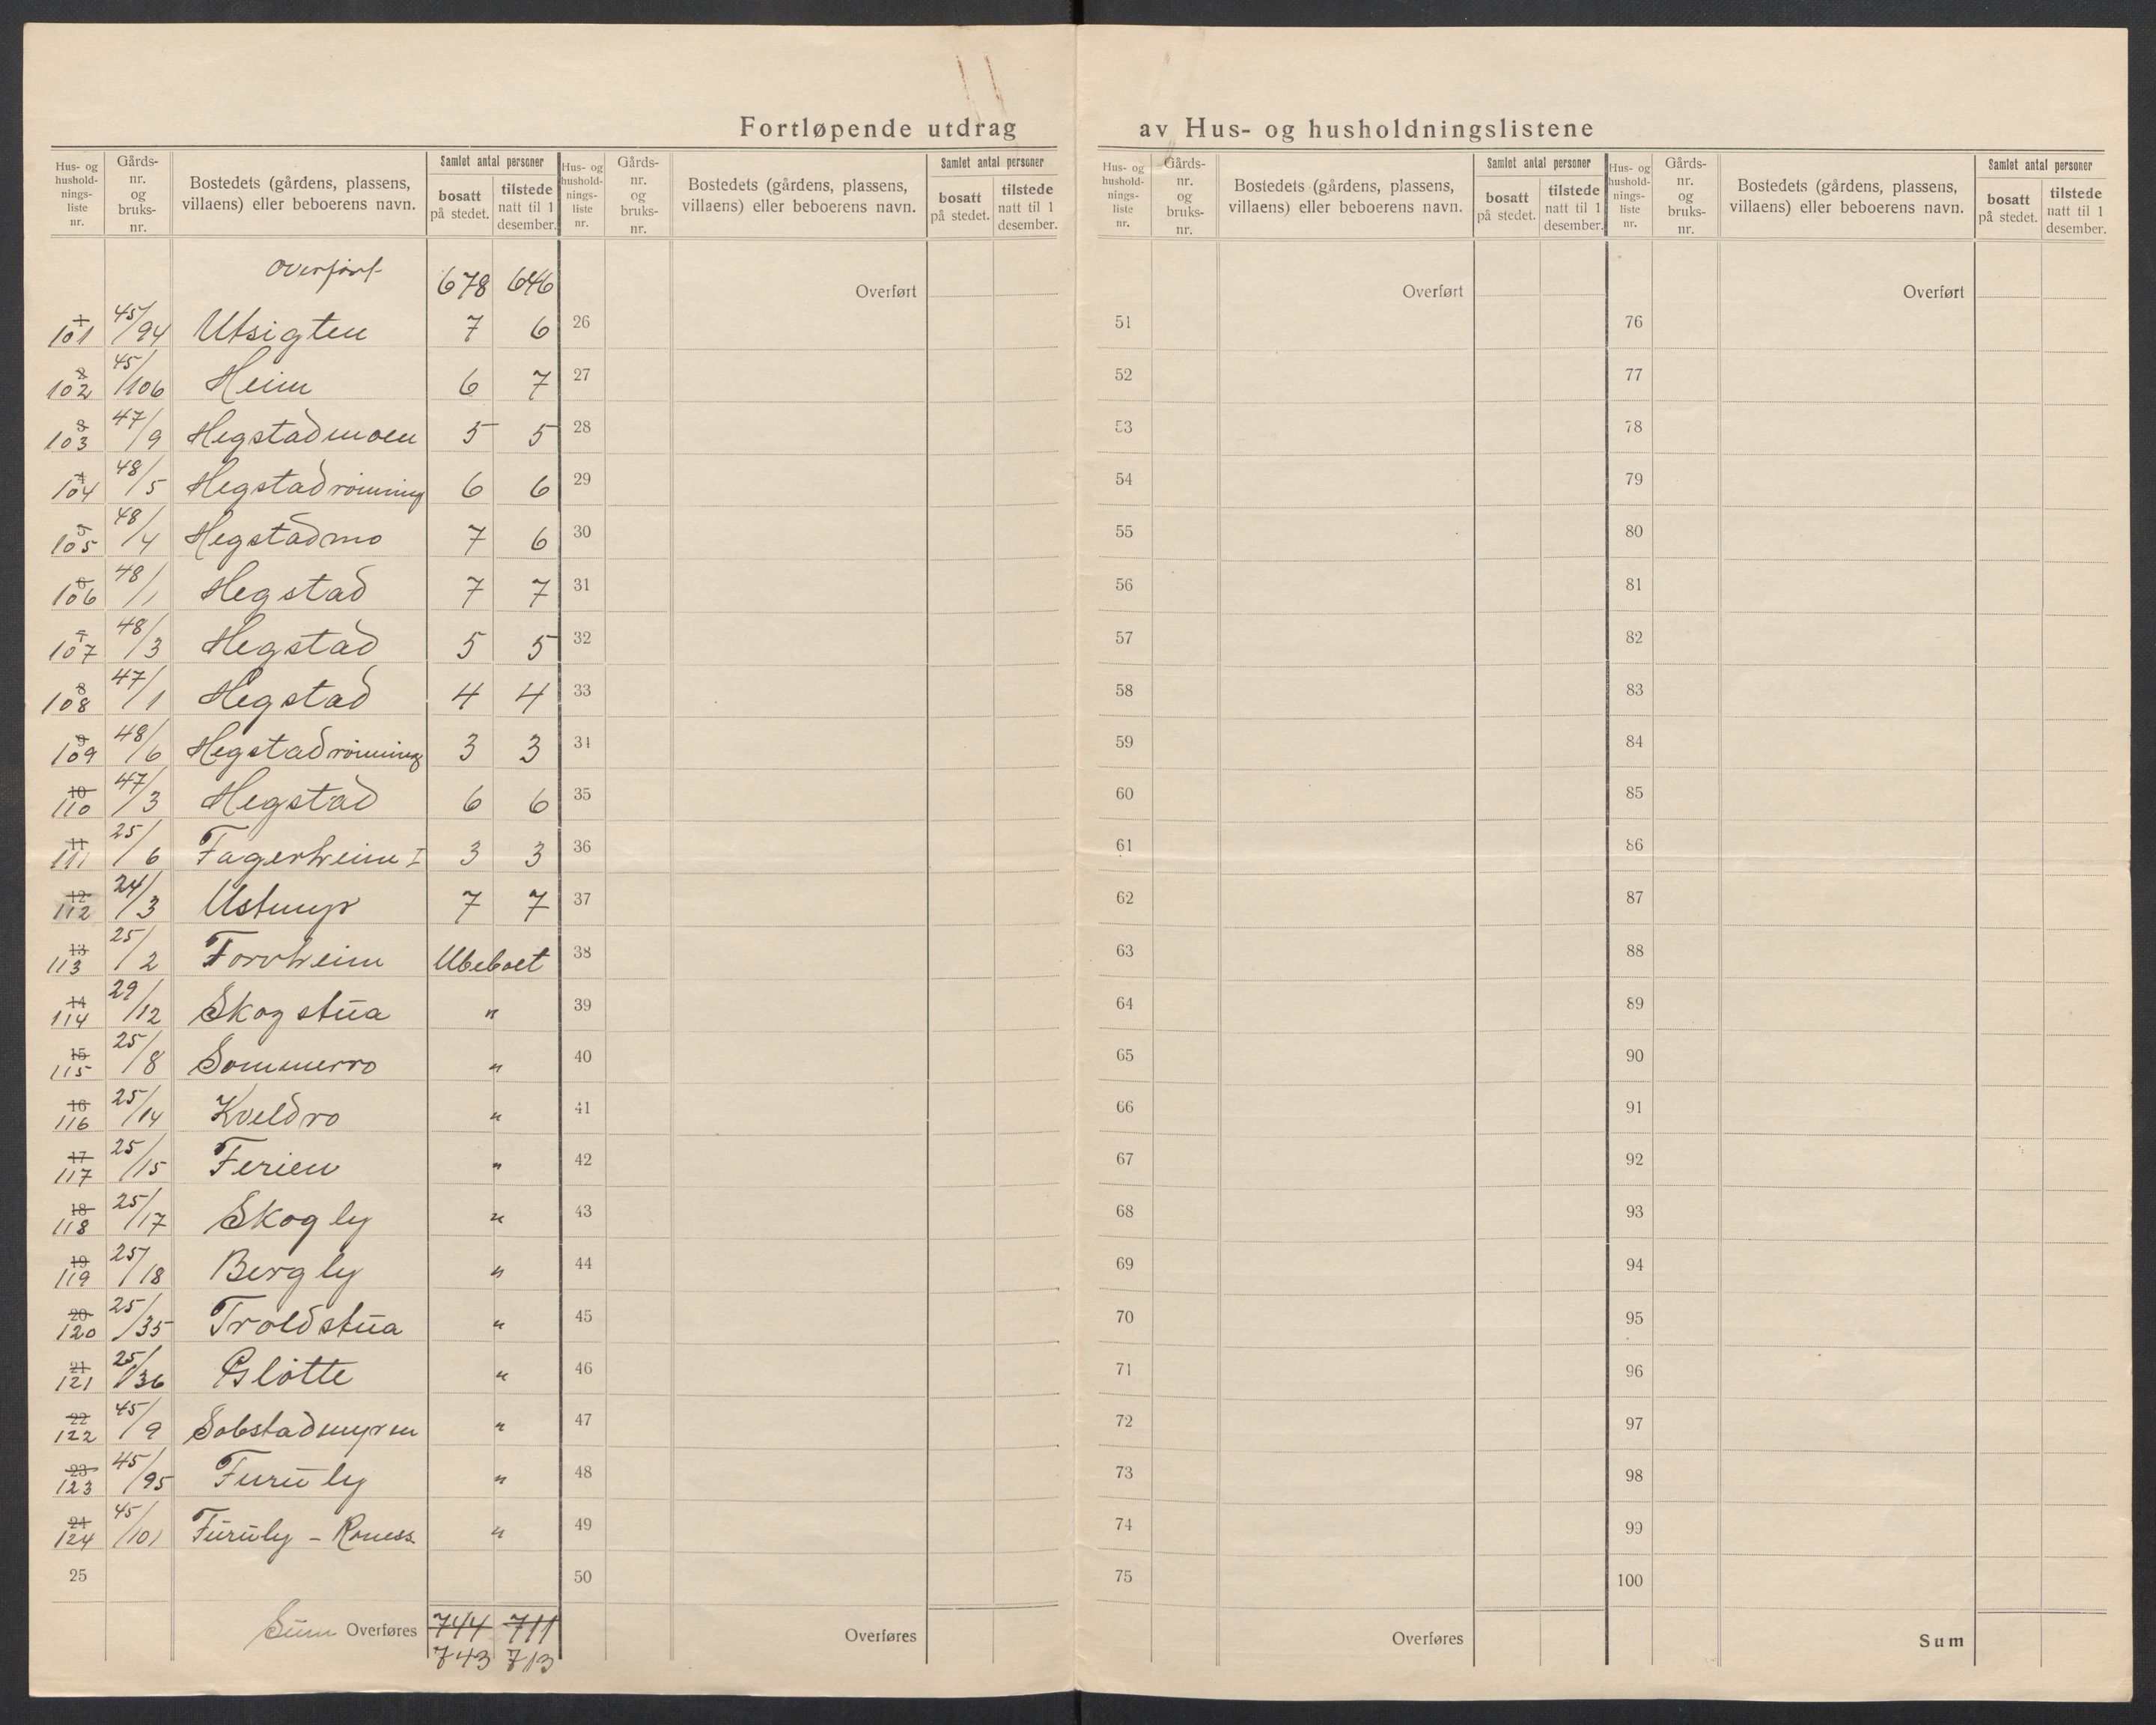 Fortløpende utdrag av Hus- og husholdningslistene
Hus- og husholdnings-liste nr. | Gårds-nr. og bruks-nr. | Bostedets (gårdens, plassens, villaens) eller beboerens navn. | Samlet antal personer bosatt på stedet. | tilstede natt til 1 desember.
Overført 678 646
1 101 45/94 Utsigten 7 6
2 102 45/106 Heim 6 7
3 103 47/9 Hegstadmoen 5 5
4 104 48/5 Hegstadrønning 6 6
5 105 48/4 Hegstadmo 7 6
6 106 48/1 Hegstad 7 7
7 107 48/3 Hegstad 5 5
8 108 47/1 Hegstad 4 4
9 109 48/6 Hegstadrønning 3 3
10 110 47/3 Hegstad 6 6
11 111 25/6 Fagerheim I 3 3
12 112 24/3 Ustmyr 7 7
13 113 25/2 Torvheim Ubeboet
14 114 29/12 Skogstua "
15 115 25/8 Sommerro "
16 116 25/14 Kveldro "
17 117 25/15 Ferien "
18 118 25/17 Skogly "
19 119 25/18 Bergly "
20 120 25/35 Troldstua "
21 121 25/36 Gløtte "
22 122 45/9 Sobstadmyren "
23 123 45/95 Furuly "
24 124 45/101 Furuly - "
25
Sum Overføres 744 711
743 713
Hus- og husholdnings-liste nr. | Gårds-nr. og bruks-nr. | Bostedets (gårdens, plassens, villaens) eller beboerens navn. | Samlet antal personer bosatt på stedet. | tilstede natt til 1 desember.
Overført
26
27
28
29
30
31
32
33
34
35
36
37
38
39
40
41
42
43
44
45
46
47
48
49
50
Overføres
Hus- og husholdnings-liste nr. | Gårds-nr. og bruks-nr. | Bostedets (gårdens, plassens, villaens) eller beboerens navn. | Samlet antal personer bosatt på stedet. | tilstede natt til 1 desember.
Overført
51
52
53
54
55
56
57
58
59
60
61
62
63
64
65
66
67
68
69
70
71
72
73
74
75
Overføres
Hus- og husholdnings-liste nr. | Gårds-nr. og bruks-nr. | Bostedets (gårdens, plassens, villaens) eller beboerens navn. | Samlet antal personer bosatt på stedet. | tilstede natt til 1 desember.
Overført
76
77
78
79
80
81
82
83
84
85
86
87
88
89
90
91
92
93
94
95
96
97
98
99
100
Sum